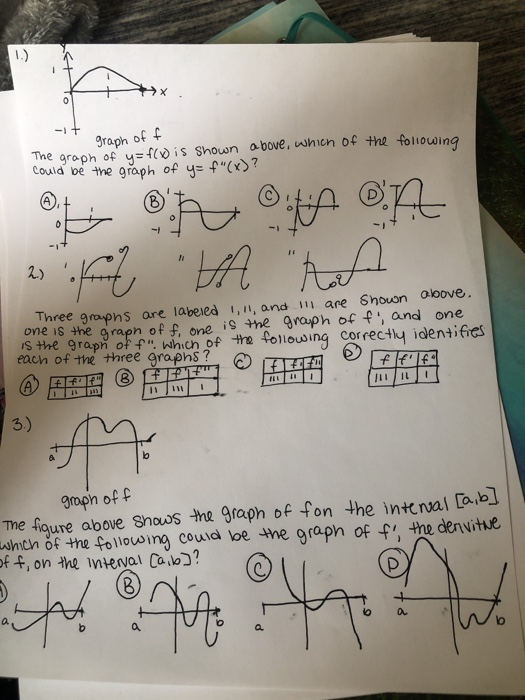 1.)
Y
1
1
0
x
-1
graph of f
The graph of y=f(x) is shown above, which of the following
could be the graph of y= f"(x)?
A 1 0 -1 B 1 0 -1 C 1 0 -1 D 1 0 -1
2.) ' " "'
Three graphs are labeled 1, 11, and 111 are shown above.
one is the graph of f, one is the graph of f', and one
is the graph of f". Which of the following correctly identifies
each of the three graphs?
A f f' f" B f f' f" C f f' f" D f f' f"
I II III II III I III II I
3.)
a b
graph of f
The figure above shows the graph of f on the interval [a,b]
which of the following could be the graph of f', the derivitive
of f, on the interval [a,b]?
B C D
a b a b a b a b